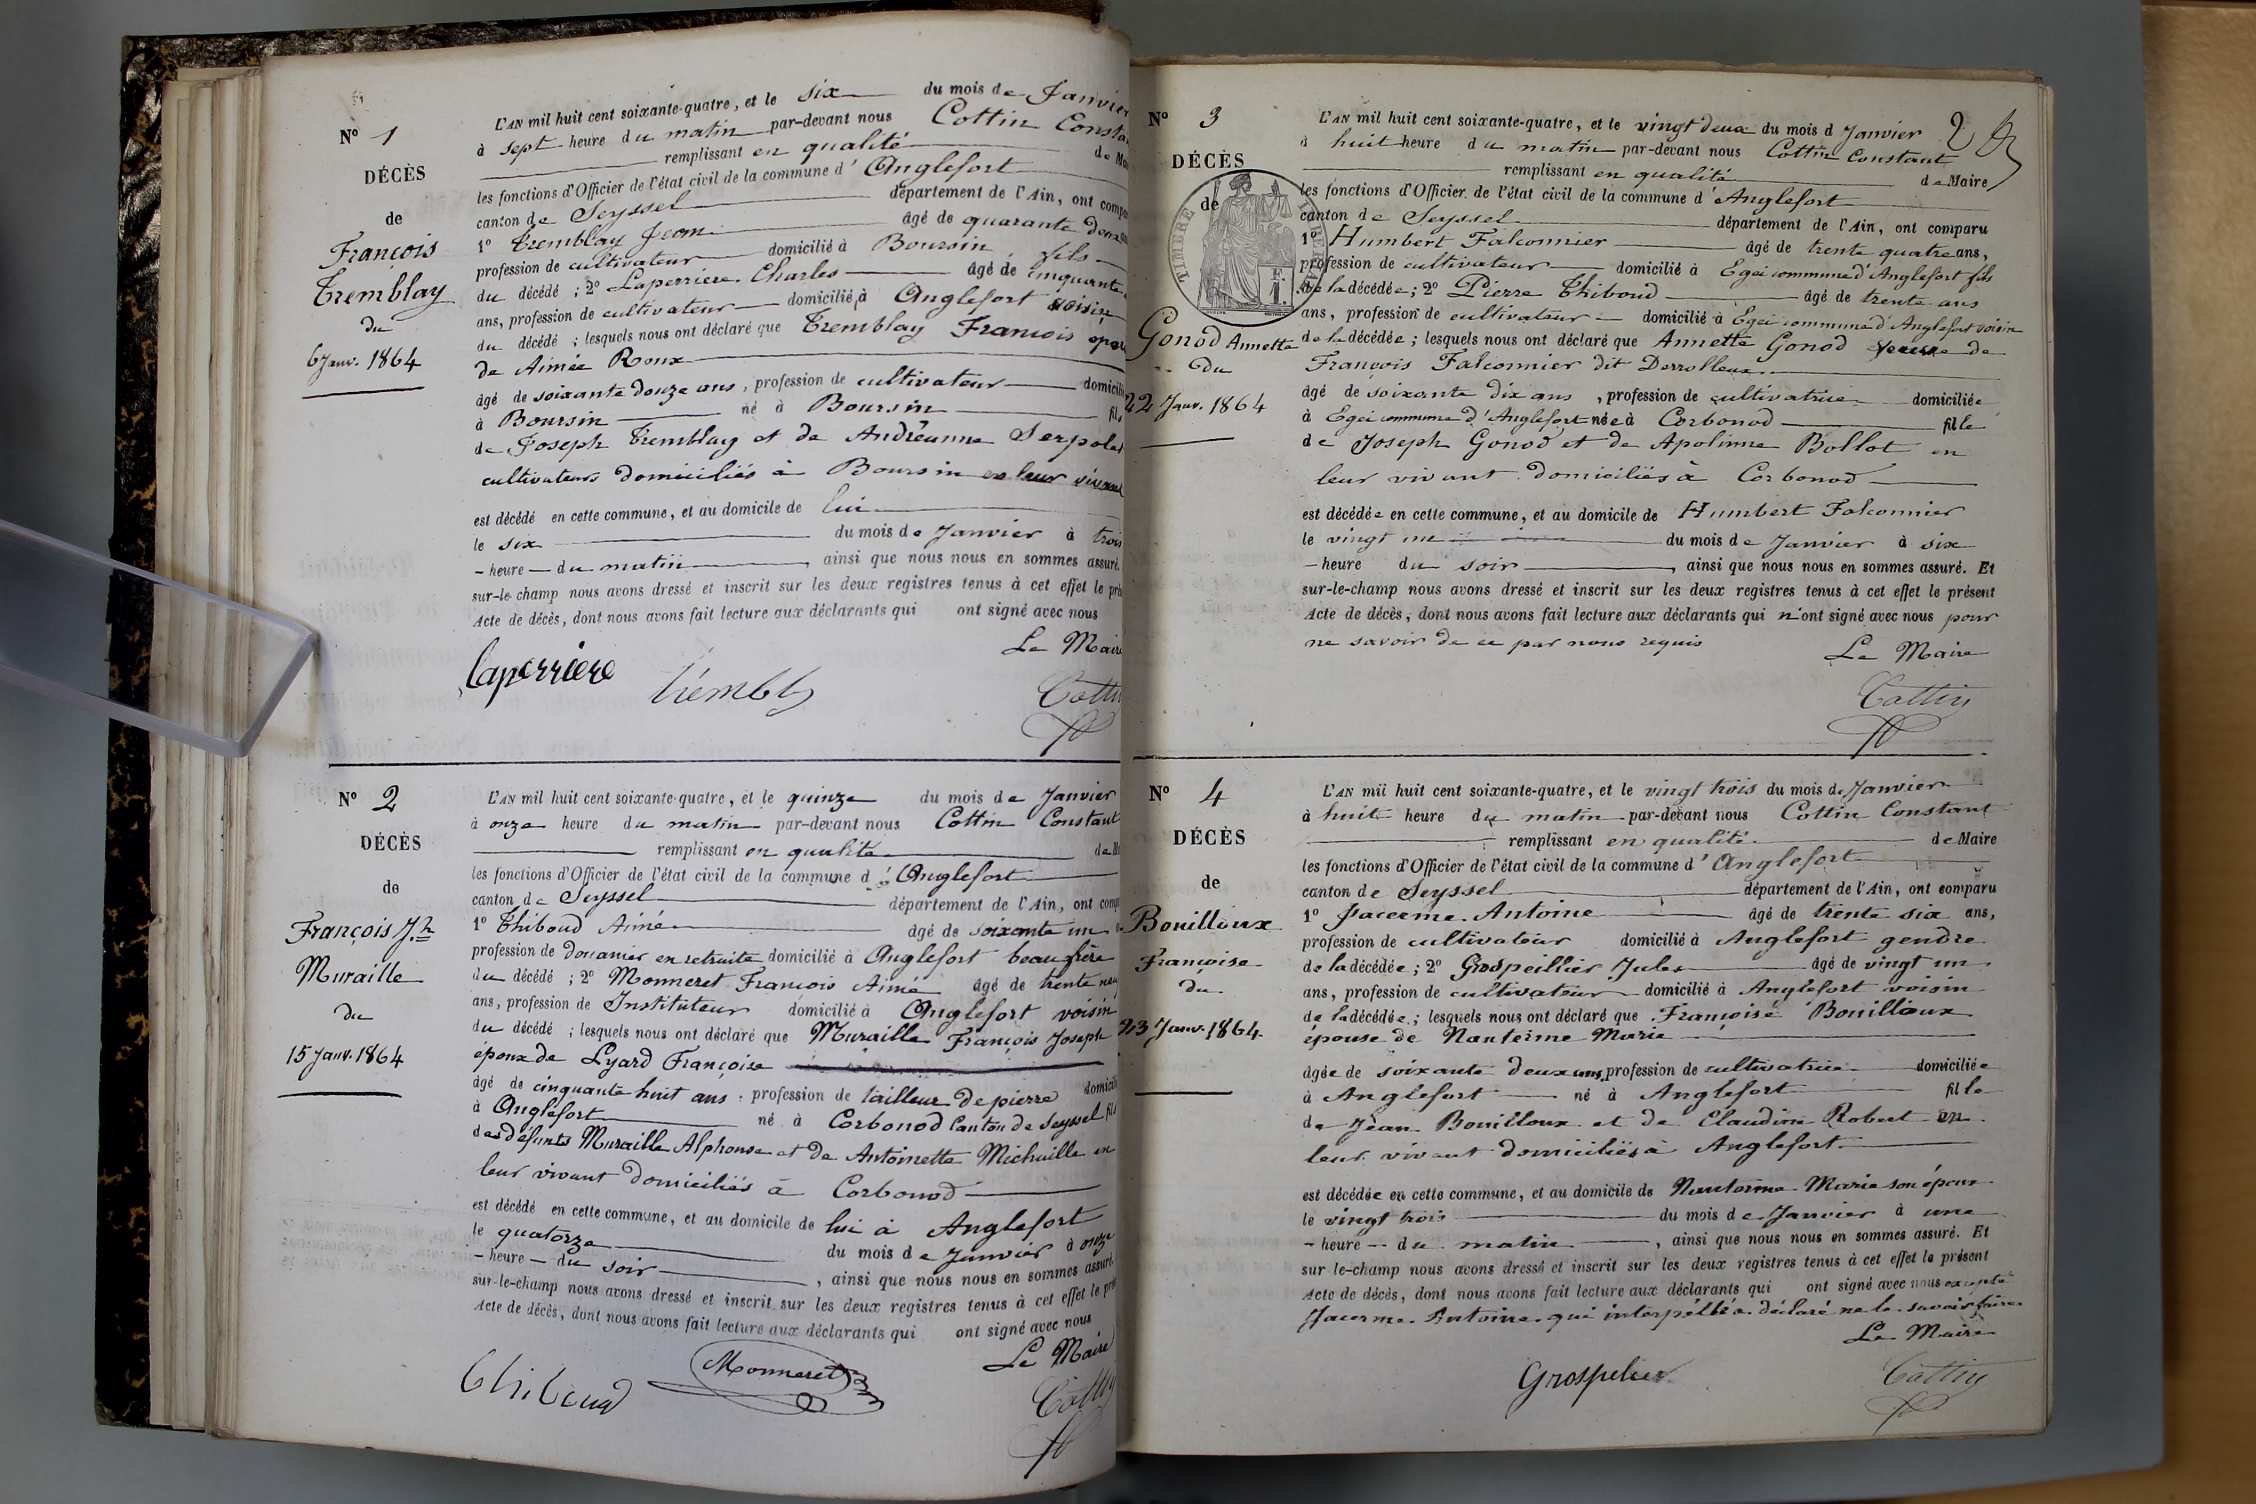 N° 1
DÉCÈS
de
François
Tremblay
du
6 Janv. 1864
L'AN mil huit cent soixante-quatre, et le six du mois de Janvier
à sept heure du matin par-devant nous Cottin
remplissant en qualité de
les fonctions d'Officier de l'état civil de la commune d'Anglefort
canton de Seyssel département de l'Ain, ont
1° Tremblay Jean âgé de quarante
profession de cultivateur domicilié à Boursin fils
du décédé ; 2° Laperrière Charles âgé de cinquante
ans, profession de cultivateur domicilié à Anglefort voisin
du décédé ; lesquels nous ont déclaré que Tremblay François
de Aimée Roux
âgé de soixante douze ans, profession de cultivateur
à Boursin né à Boursin
de Joseph Tremblay et de Andréanne
cultivateurs domiciliés à Boursin en leur vivant
est décédé en cette commune, et au domicile de lui
le six du mois de Janvier à trois
- heure - du matin, ainsi que nous nous en sommes assuré.
sur-le-champ nous avons dressé et inscrit sur les deux registres tenus à cet effet le
Acte de décès, dont nous avons fait lecture aux déclarants qui ont signé avec nous
Le Maire
Laperriere Trembly Cottin
N° 2
DÉCÈS
de
François Jh
Muraille
du
15 Janv. 1864
L'AN mil huit cent soixante-quatre, et le quinze du mois de Janvier
à onze heure du matin par-devant nous Cottin Constant
remplissant en qualité de
les fonctions d'Officier de l'état civil de la commune d'Anglefort
canton de Seyssel département de l'Ain, ont
1° Thiboud Aimé âgé de soixante un
profession de douanier en retraite domicilié à Anglefort beau frère
du décédé ; 2° Monneret François Aimé âgé de trente
ans, profession de Instituteur domicilié à Anglefort voisin
du décédé ; lesquels nous ont déclaré que Muraille François Joseph
époux de Lyard Françoise
âgé de cinquante huit ans, profession de tailleur de pierre
à Anglefort né à Corbonod Canton de Seyssel fils
des défunts Muraille Alphonse et de Antoinette Michaille en
leur vivant domiciliés à Corbonod
est décédé en cette commune, et au domicile de lui à Anglefort
le quatorze du mois de Janvier à onze
- heure - du soir, ainsi que nous nous en sommes assuré.
sur-le-champ nous avons dressé et inscrit sur les deux registres tenus à cet effet le
Acte de décès, dont nous avons fait lecture aux déclarants qui ont signé avec nous
Le Maire
Thiboud Monneret Cottin
2
N° 3
DÉCÈS
de
TIMBRE
Gonod Annette
du
22 Janv. 1864
L'AN mil huit cent soixante-quatre, et le vingt deux du mois d Janvier
à huit heure du matin par-devant nous Cottin Constant
remplissant en qualité de Maire
les fonctions d'Officier de l'état civil de la commune d'Anglefort
canton de Seyssel département de l'Ain, ont comparu
1° Humbert Falconnier âgé de trente quatre ans,
profession de cultivateur domicilié à Egei commune d'Anglefort fils
de la décédée ; 2° Pierre Thiboud âgé de trente ans
ans, profession de cultivateur domicilié à Egei commune d'Anglefort voisin
de la décédée ; lesquels nous ont déclaré que Annette Gonod veuve de
François Falconnier dit
âgé de soixante dix ans, profession de cultivatrice domiciliée
à Egei commune d'Anglefort née à Corbonod fille
de Joseph Gonod et de Apolinne Bollot en
leur vivant domiciliés à Corbonod
est décédée en cette commune, et au domicile de Humbert Falconnier
le vingt un du mois de Janvier à six
- heure du soir, ainsi que nous nous en sommes assuré. Et
sur-le-champ nous avons dressé et inscrit sur les deux registres tenus à cet effet le présent
Acte de décès, dont nous avons fait lecture aux déclarants qui n'ont signé avec nous pour
ne savoir de ce par nous requis
Le Maire
Cottin
N° 4
DÉCÈS
de
Bouilloux
Françoise
du
23 Janv. 1864
L'AN mil huit cent soixante-quatre, et le vingt trois du mois de Janvier
à huit heure du matin par-devant nous Cottin Constant
remplissant en qualité de Maire
les fonctions d'Officier de l'état civil de la commune d'Anglefort
canton de Seyssel département de l'Ain, ont comparu
1° Jacerme Antoine âgé de trente six ans,
profession de cultivateur domicilié à Anglefort gendre
de la décédée ; 2° Grospeillier Jules âgé de vingt un
ans, profession de cultivateur domicilié à Anglefort voisin
de la décédée ; lesquels nous ont déclaré que Françoise Bouilloux
épouse de Nanterme Marie
âgée de soixante deux ans, profession de cultivatrice domiciliée
à Anglefort né à Anglefort fille
de Jean Bouilloux et de Claudine Robert en
leur vivant domiciliés à Anglefort
est décédée en cette commune, et au domicile de Nanterme Marie son époux
le vingt trois du mois de Janvier à une
- heure - du matin, ainsi que nous nous en sommes assuré. Et
sur le-champ nous avons dressé et inscrit sur les deux registres tenus à cet effet le présent
Acte de décès, dont nous avons fait lecture aux déclarants qui ont signé avec nous excepté
Jacerme Antoine qui interpellé a déclaré ne le savoir faire
Le Maire
Grospelier Cottin